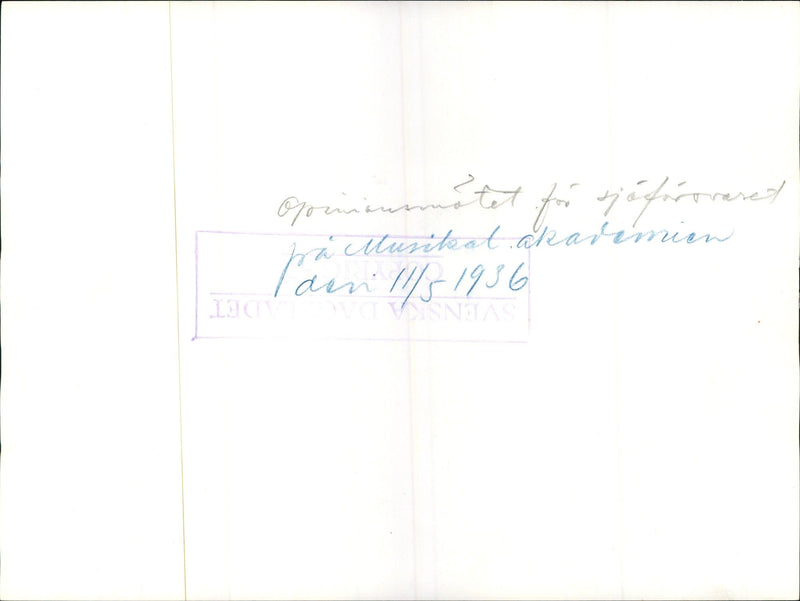 Opinionsmötet för sjöförsvaret
på Musikal. akademien
den 11/5 1936
COPYRIGHT
SVENSKA DAGBLADET